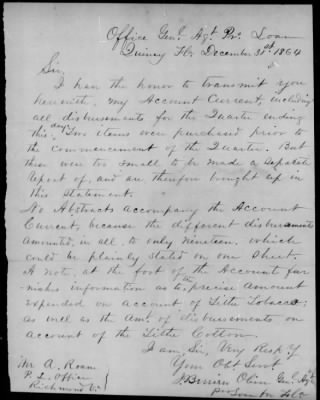 Office Genl. Agt. Pro. Loan
Quincy Fla. December 31st 1864
Sir,
I have the honor to transmit you
herewith, my Account Current, including
all disbursements for the Quarter ending
this day. Two items were purchased prior to
the Commencement of the Quarter. But
these were too small to be made a separate
report of, and are therefore brought up in
this statement.
No Abstracts accompany the Account
Current, because the different disbursements
amounted, in all, to only nineteen, which
could be plainly stated on one sheet.
A note, at the foot of the Account fur-
nishes information as to precise amount
expended on account of Tithe Tobacco;
as well as the Amt. of disbursements on
account of the Tithe Cotton.
I am, Sir, Very Resp'y
Your Obt Servt
Olin Genl. Agt
A. Roane
P. L. Office
Richmond Va.